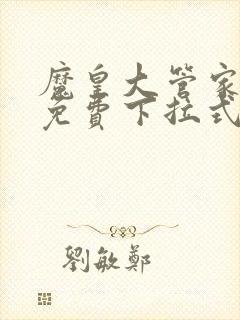 魔皇大管家
免費下拉式
劉敏鄭